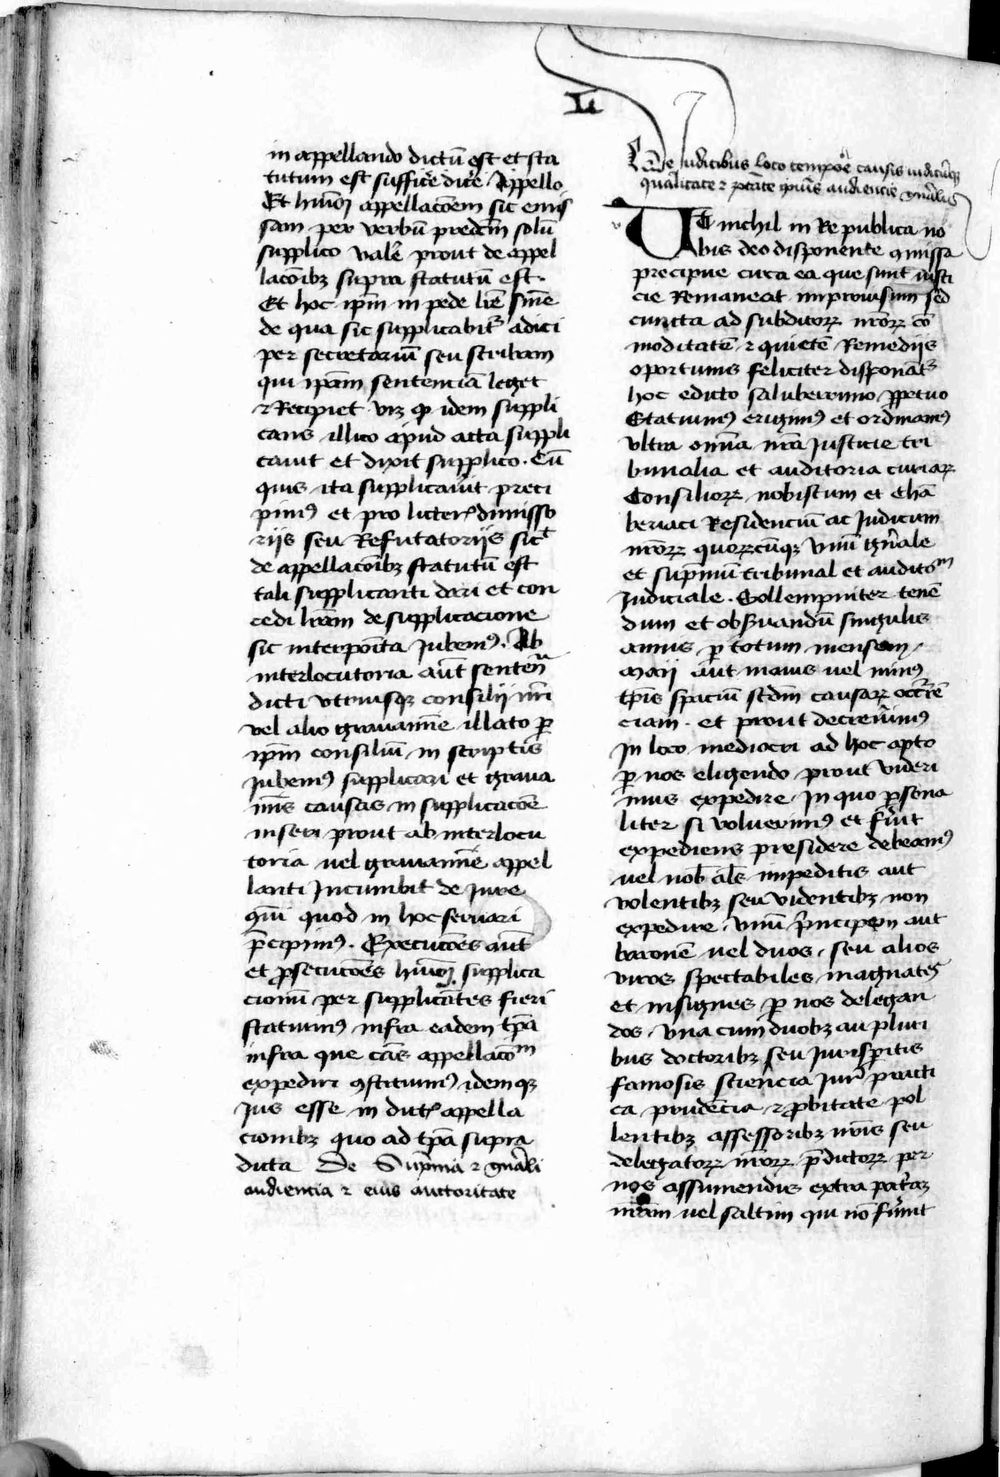 Li
in appellando dictū est et sta
tutum est sufficĕ dicĕ Appello
Et hmōi appellacōem sic emis
sam per verbū predcm̄ solū
supplico valĕ prout de appel
lacōibꝫ supra statutū est.
Et hoc ip̄m in pede
de qua sic supplicabitᷣ adici
per secretariū seu scribam
qui ip̄am sentenciā leget
⁊ Recipiet vꝫ ꝙ idem suppli
cans illico apud acta suppli
cavit et dixit supplico. Cū
quis ita supplicavit preci
pimꝰ et pro litteris dimisso
riis seu Refutatoriis sicᵗ
de appellacōibꝫ statutū est
tali supplicanti dari et con
cedi lr̄am de supplicacione
sic interpoīta Jubemꝰ. Ab
interlocutoria aūt sentenᵃ
dicti vtriusqꝫ consilii nr̄i
vel alio gravamīe illato ꝑ
ip̄m consiliū in scriptis
Jubemꝰ supplicari et grava
mīs causas in supplicacōe
inseri prout ab interlocu
toria vel gravamīe appel
lanti Incumbit de Iure
quod in hoc servari
p̄cipimꝰ. Execucōes aūt
et ꝓsecucōes hmōi supplica
cionū per supplicātes fieri
statuimꝰ infra eadem tp̄a
infra que cās appellacōm
expediri ꝯstituimꝰ idemqꝫ
Jus esse in dictis appella
cionibꝫ quo ad tp̄a supra
dicta De Sup̄ma ⁊ gn̄ali
audiencia ⁊ eius auctoritate
De iudicibus loco tempoᵉ causis iudicūqꝫ
qualitate ⁊ ptāte audiencie gn̄alis
UT nichil in Re publica no
bis deo disponente ꝯmissa
precipue circa ea que sunt iusti
cie Remaneat improvisum sed
cuncta ad subditoꝝ nr̄oꝝ cō
moditatē ⁊ quietē Remediis
oportunis feliciter disponātᷣ
hoc edicto saluberrimo ꝑpetuo
Statuimꝰ erigimꝰ et ordinamꝰ
vltra omīa nr̄a Justicie tri
bunalia et auditoria curiaꝝ
Consilioꝝ nobiscum et Chā
beriaci Residenciū ac Judicum
nr̄oꝝ quoꝝcūqꝫ Vnū gn̄ale
et sup̄mū tribunal et auditoᵐ
Judiciale. Sollempniter tenē
dum et obsĕvandū singulis
annis ꝑ totum mensem
Maii aut maius vel minꝰ
tp̄is spaciū scd̄m causaꝝ occᵘrē
ciam. et prout decrevīmꝰ
In loco mediocri ad hoc apto
ꝑ nos eligendo prout videri
mus expedire In quo ꝑsona
liter si voluerimꝰ et fūit
expediens presidere debeamꝰ
vel nob̄ al̄s impeditis aut
volentibꝫ seu videntibꝫ non
expedire. Vnū p̄ncipem aut
baronē vel duos. seu alios
viros spectabiles magnates
et insignes ꝑ nos delegan
dos. Vna cum duobꝫ au pluri
bus doctoribꝫ seu Jurisꝑitis
famosis sciencia Juris practi
ca prudēcia ⁊ ꝓbitate pol
lentibꝫ assessoribꝫ nr̄is seu
delegatoꝝ nr̄oꝝ p̄dictoꝝ per
nos assumendis extra patᵃꝫ
nr̄am vel saltim qui nō fūint